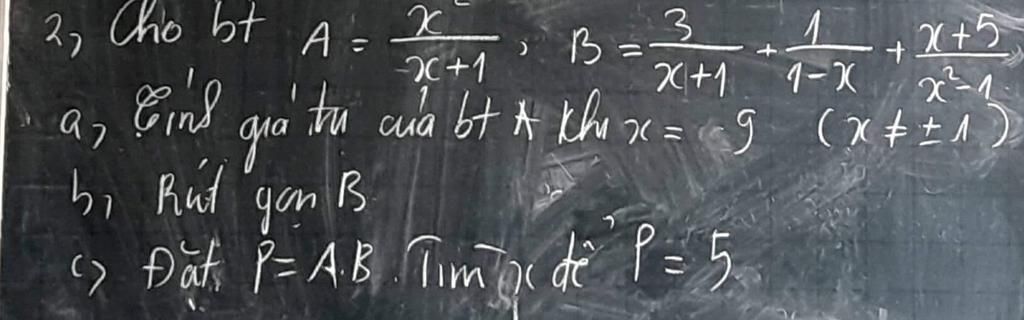 2, Cho bt A = x²/(x+1), B = 3/(x+1) + 1/(1-x) + (x+5)/(x²-1)
a, Tính giá trị của bt A khi x = 9 (x ≠ ± 1)
b, Rút gọn B
c, Đặt P = A.B. Tìm x để P = 5